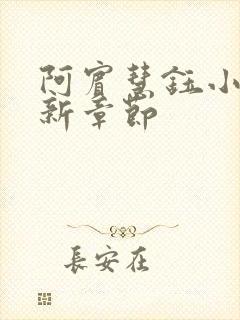 阿賓慧鈺小
新章節
長安在